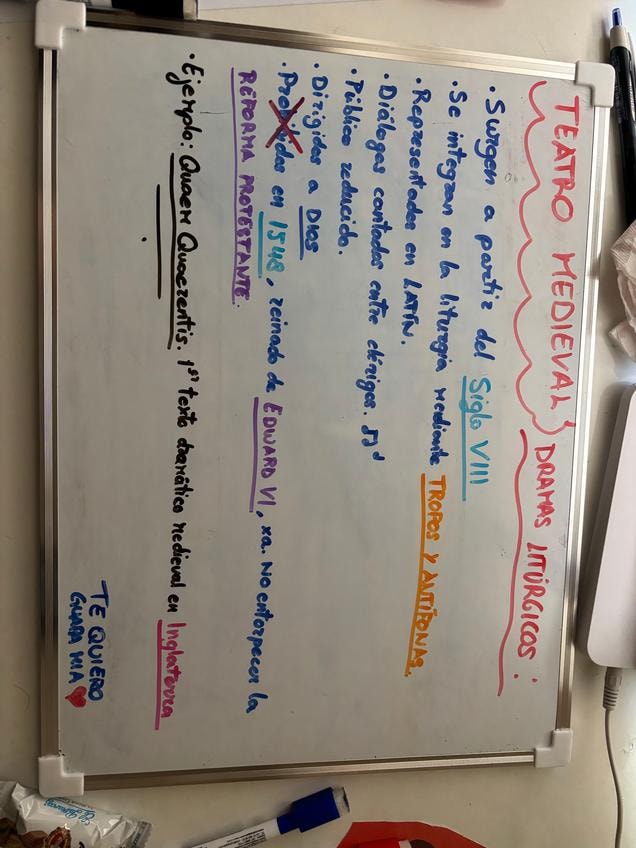 TEATRO MEDIEVAL, DRAMAS LITÚRGICOS:
· Surgen a partir del Siglo VIII
· Se integran en la liturgia mediante TROPOS Y ANTÍFONAS.
· Representados en LATÍN.
· Diálogos cantados entre clérigos.
· Público reducido.
· Dirigidos a DIOS
· Prohibidos en 1548, reinado de EDWARD VI, xa. NO entorpecer la
REFORMA PROTESTANTE.
· Ejemplo: Quaem Quaerentis. 1er texto dramático medieval en Inglaterra
TE QUIERO
GUAPA MIA